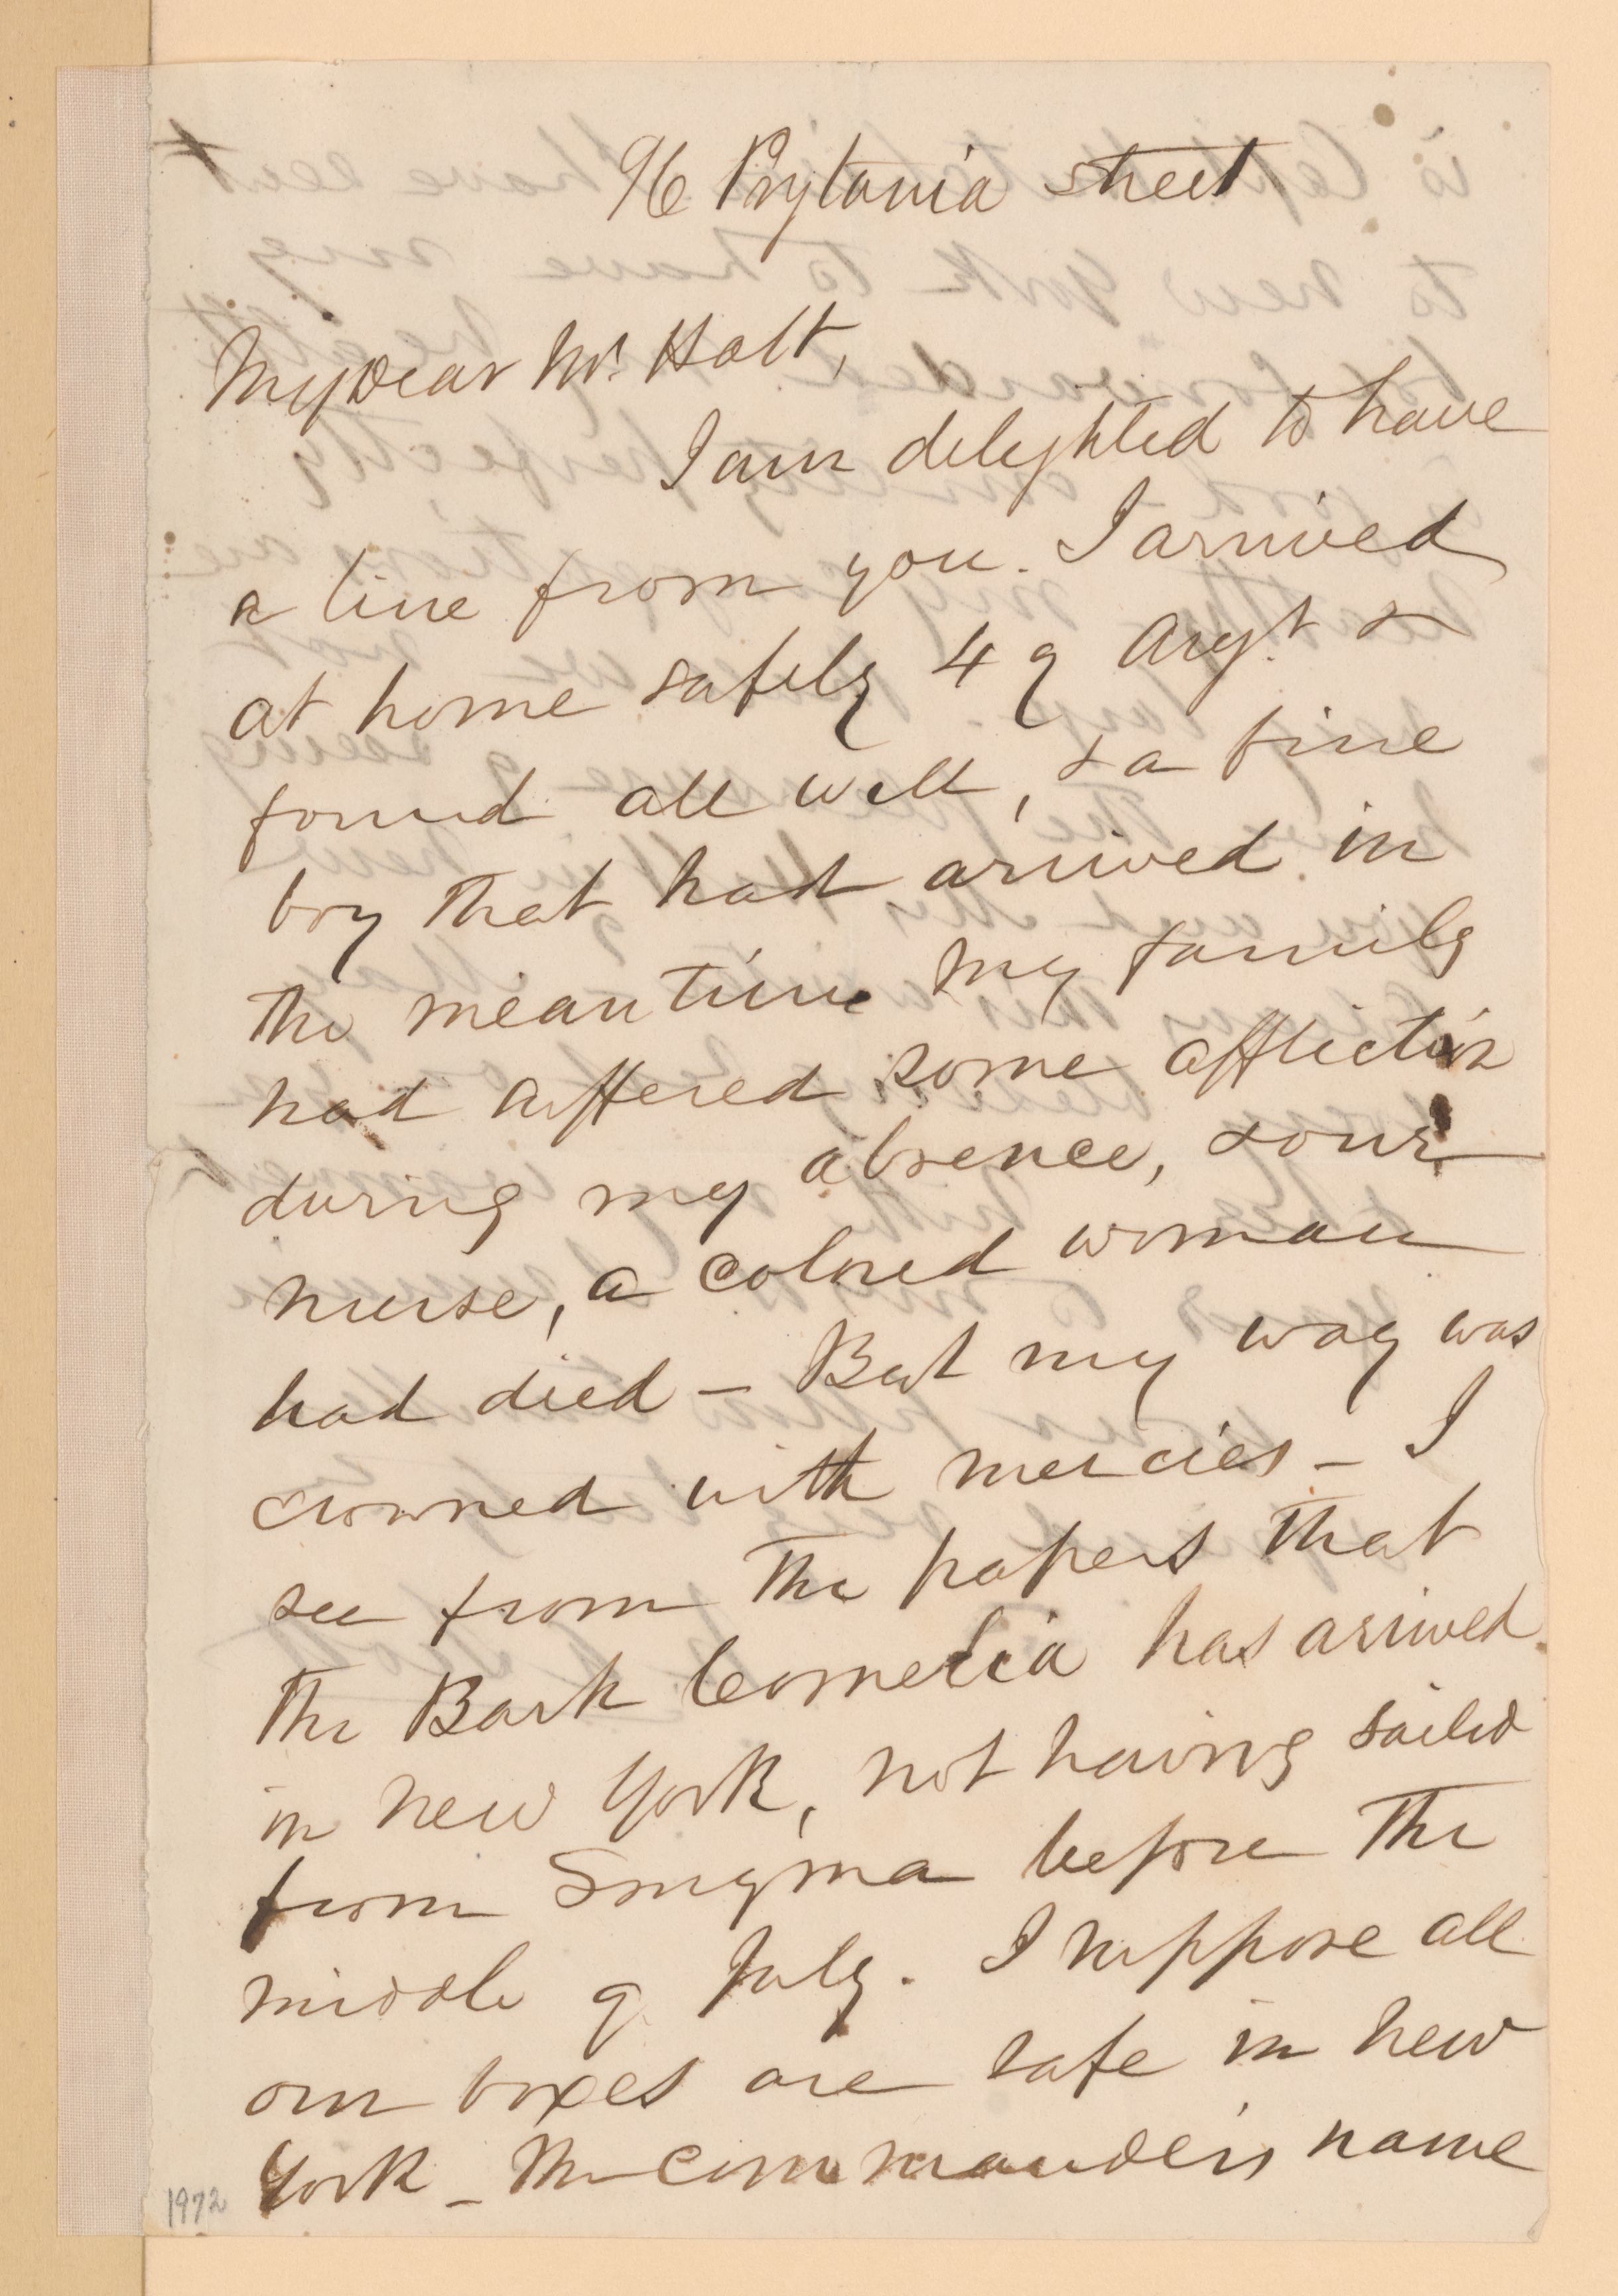 96 Prytania street
My Dear Mr. Holt,
I am delighted to have
a line from you. I arrived
at home safely 4 of Augt. &
found all well, & a fine
boy that had arrived in
the mean time. My family
had suffered some affliction
during my absence, & our
nurse, a colored woman
had died - But my way was
crowned with mercies - I
see from the papers that
the Bark Cornelia has arrived
in New York, not having sailed
from Smyrna before the
middle of July. I suppose all
our boxes are safe in New
York - The Commander's name
1972